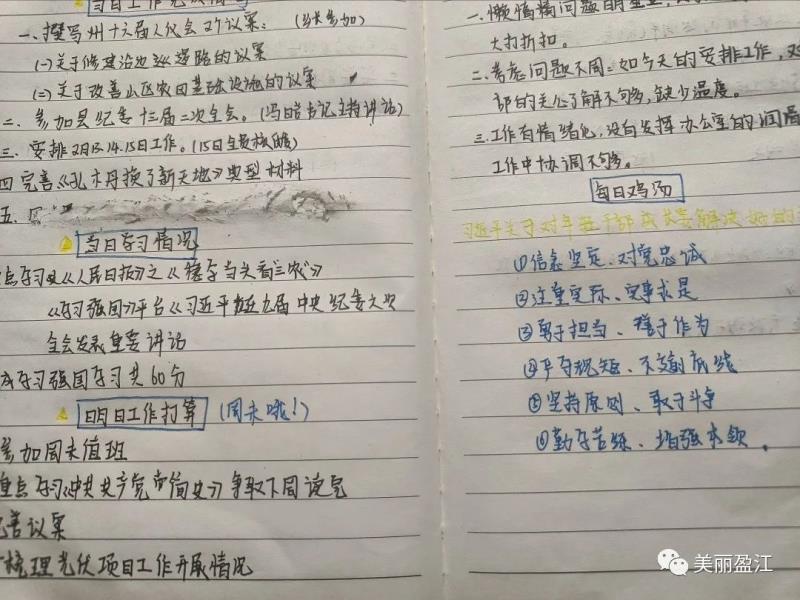 当日工作完成情况
一、撰写州十六届人代会2个议案：
(一)关于修建沿边公路的议案
(二)关于改善山区农田基础设施的议案
二、参加县纪委十三届二次全会。(冯皓书记主持讲话)
三、安排2月13.14.15日工作。
四完善《孔木丹换了新天地》典型材料
五、
当日学习情况
点学习《人民日报》之《接字当头看三农》
《学习强国》平台《习近平在十九届中央纪委六次
全会发表重要讲话
成学习强国学习共60分
明日工作打算 (周末哦！)
参加周末值班
重点学习《中共共产党简史》争取下周读完
完善议案
梳理光伏项目工作开展情况
一.懒惰
大打折扣。
二.考虑问题不周：如今天的安排工作，对
部的关心了解不够多，缺少温度。
三.工作有情绪化，没有发挥办公室的润滑
工作中协调不够。
每日鸡汤
习近平关于对年轻干部成长要解决好的
①信念坚定、对党忠诚
②注重实际、实事求是
③勇于担当、善于作为
④严守规矩、不逾底线
⑤坚持原则、敢于斗争
⑥勤学苦练、增强本领。
美丽盈江